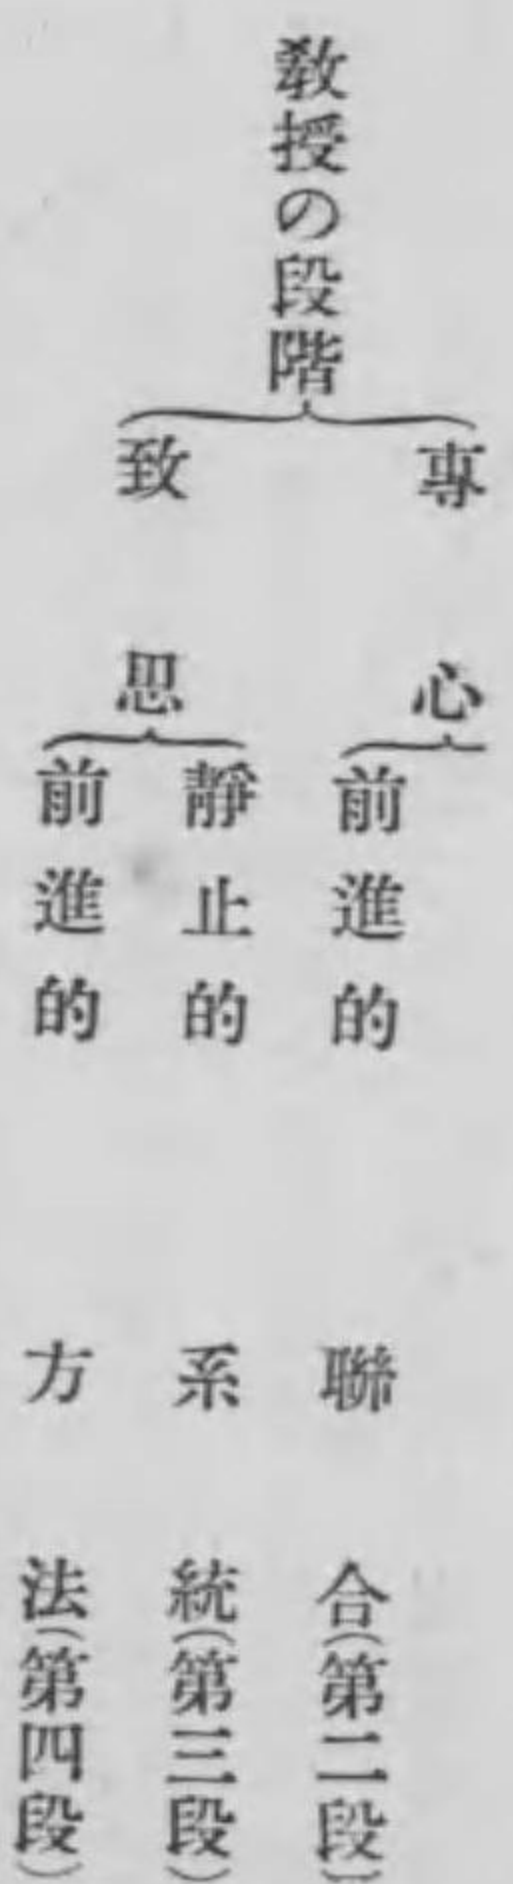 教授の段階
專心
前進的　聯合(第二段)
致思
靜止的　系統(第三段)
前進的　方法(第四段)